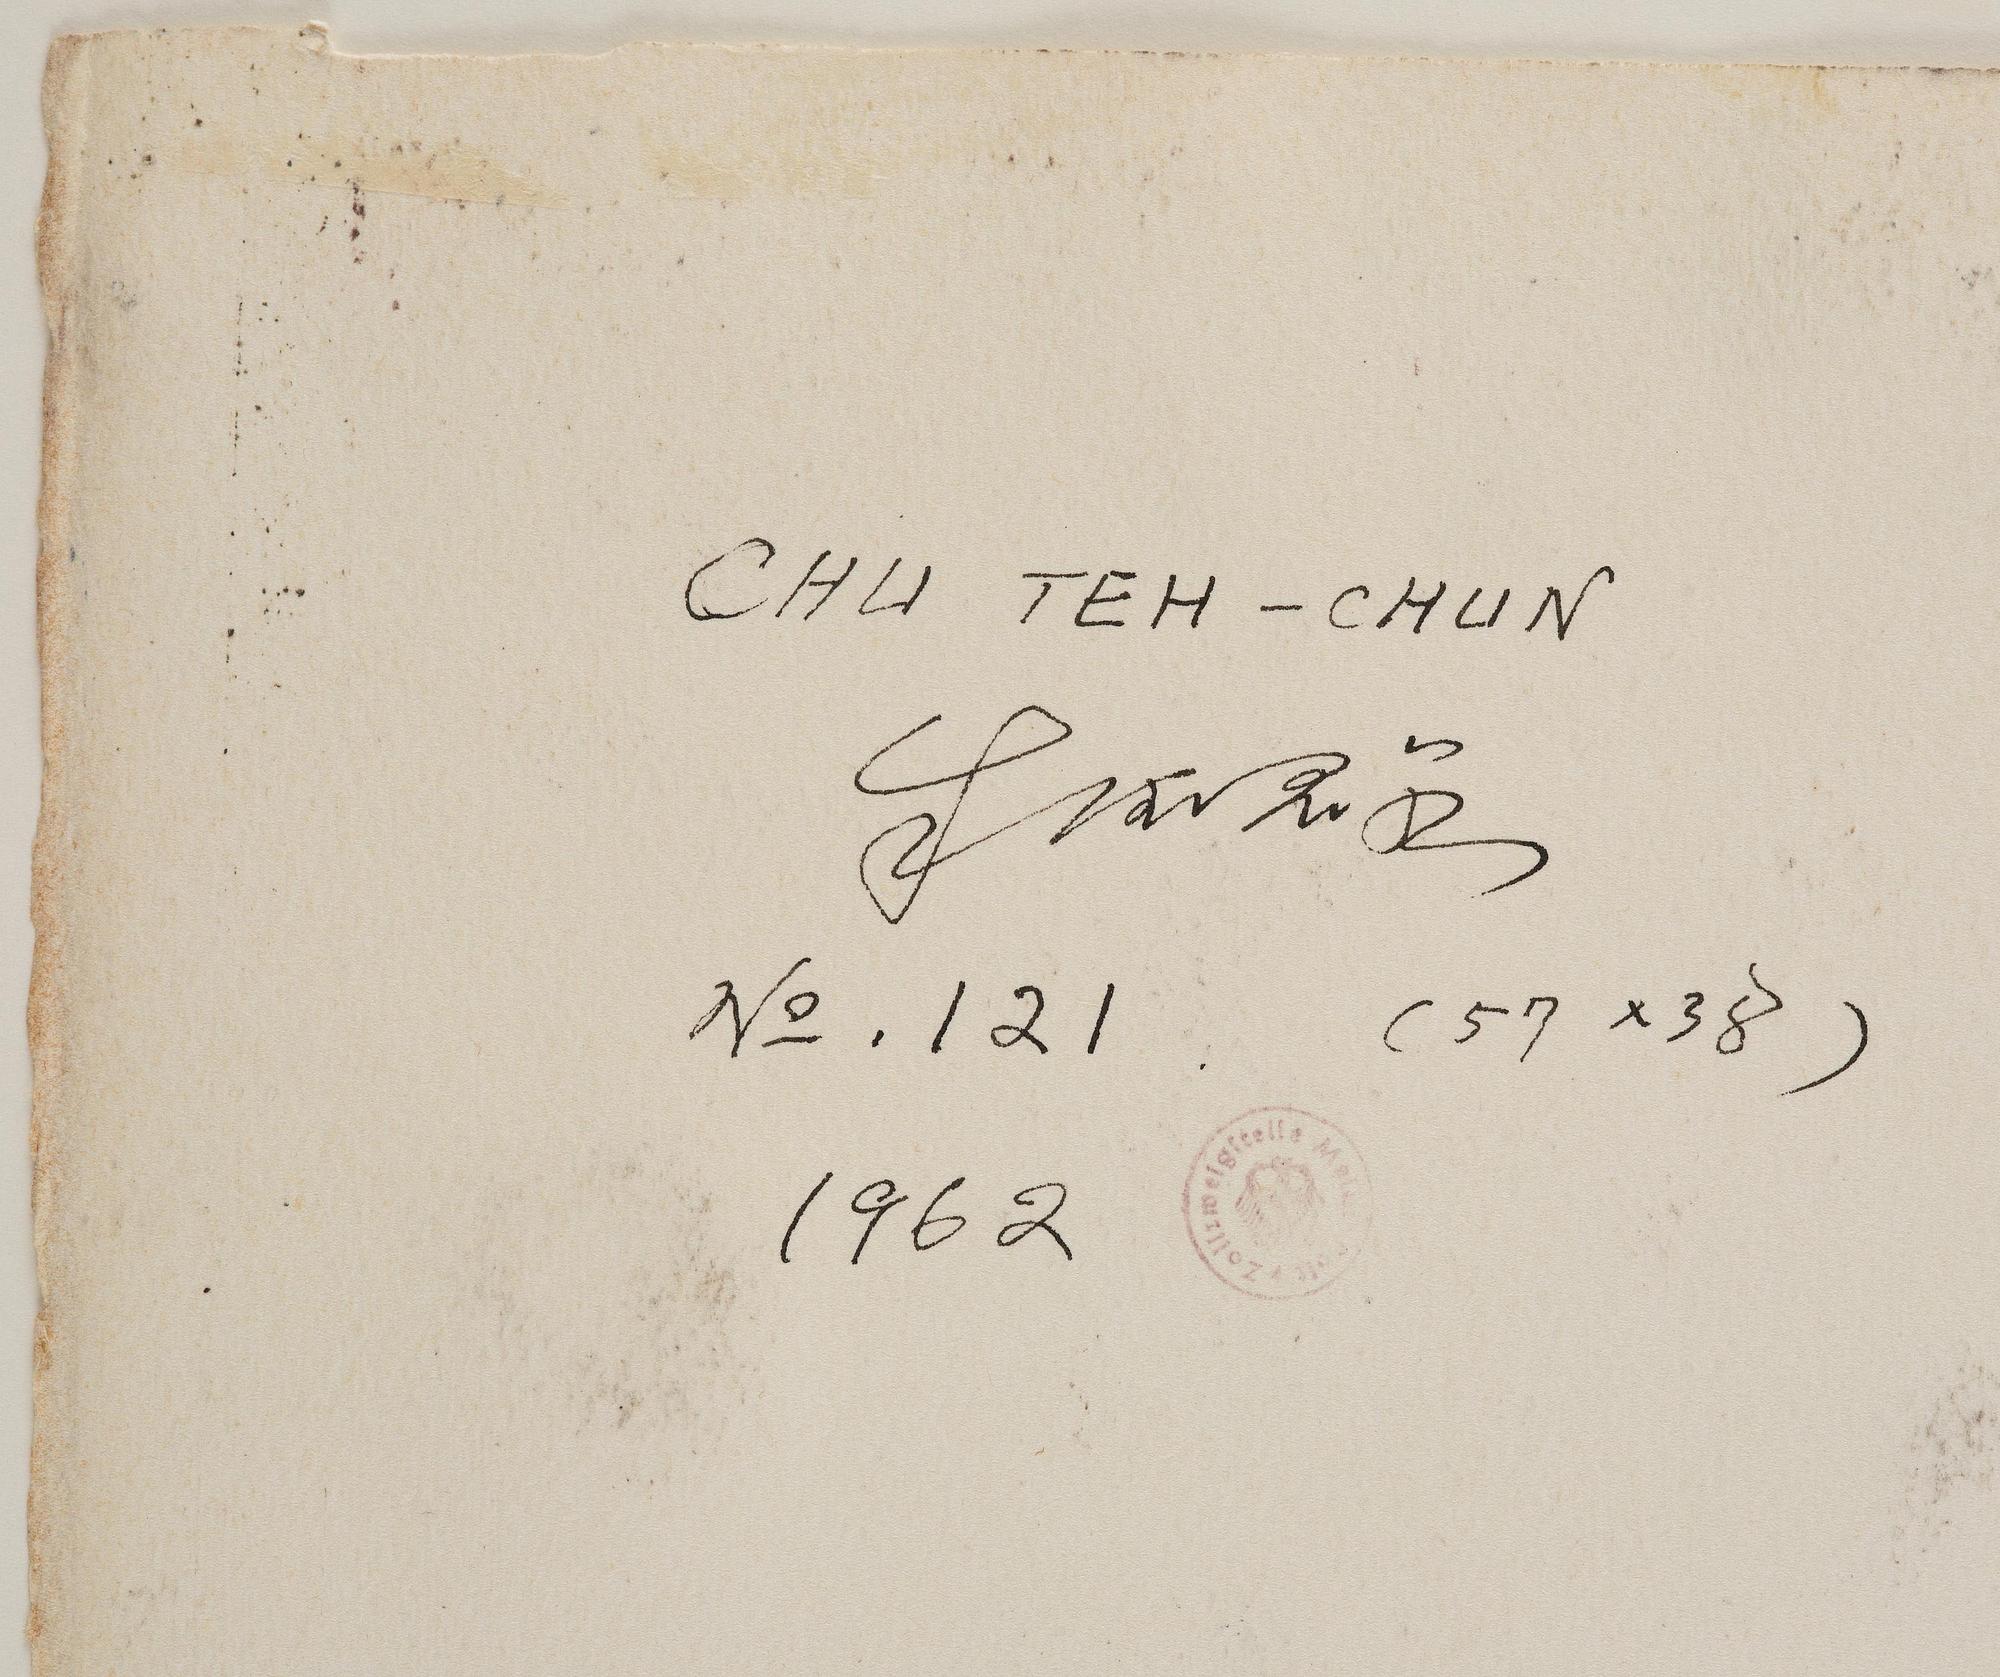 CHU TEH-CHUN
No. 121. (57 x 38)
1962
Zollzweigstelle